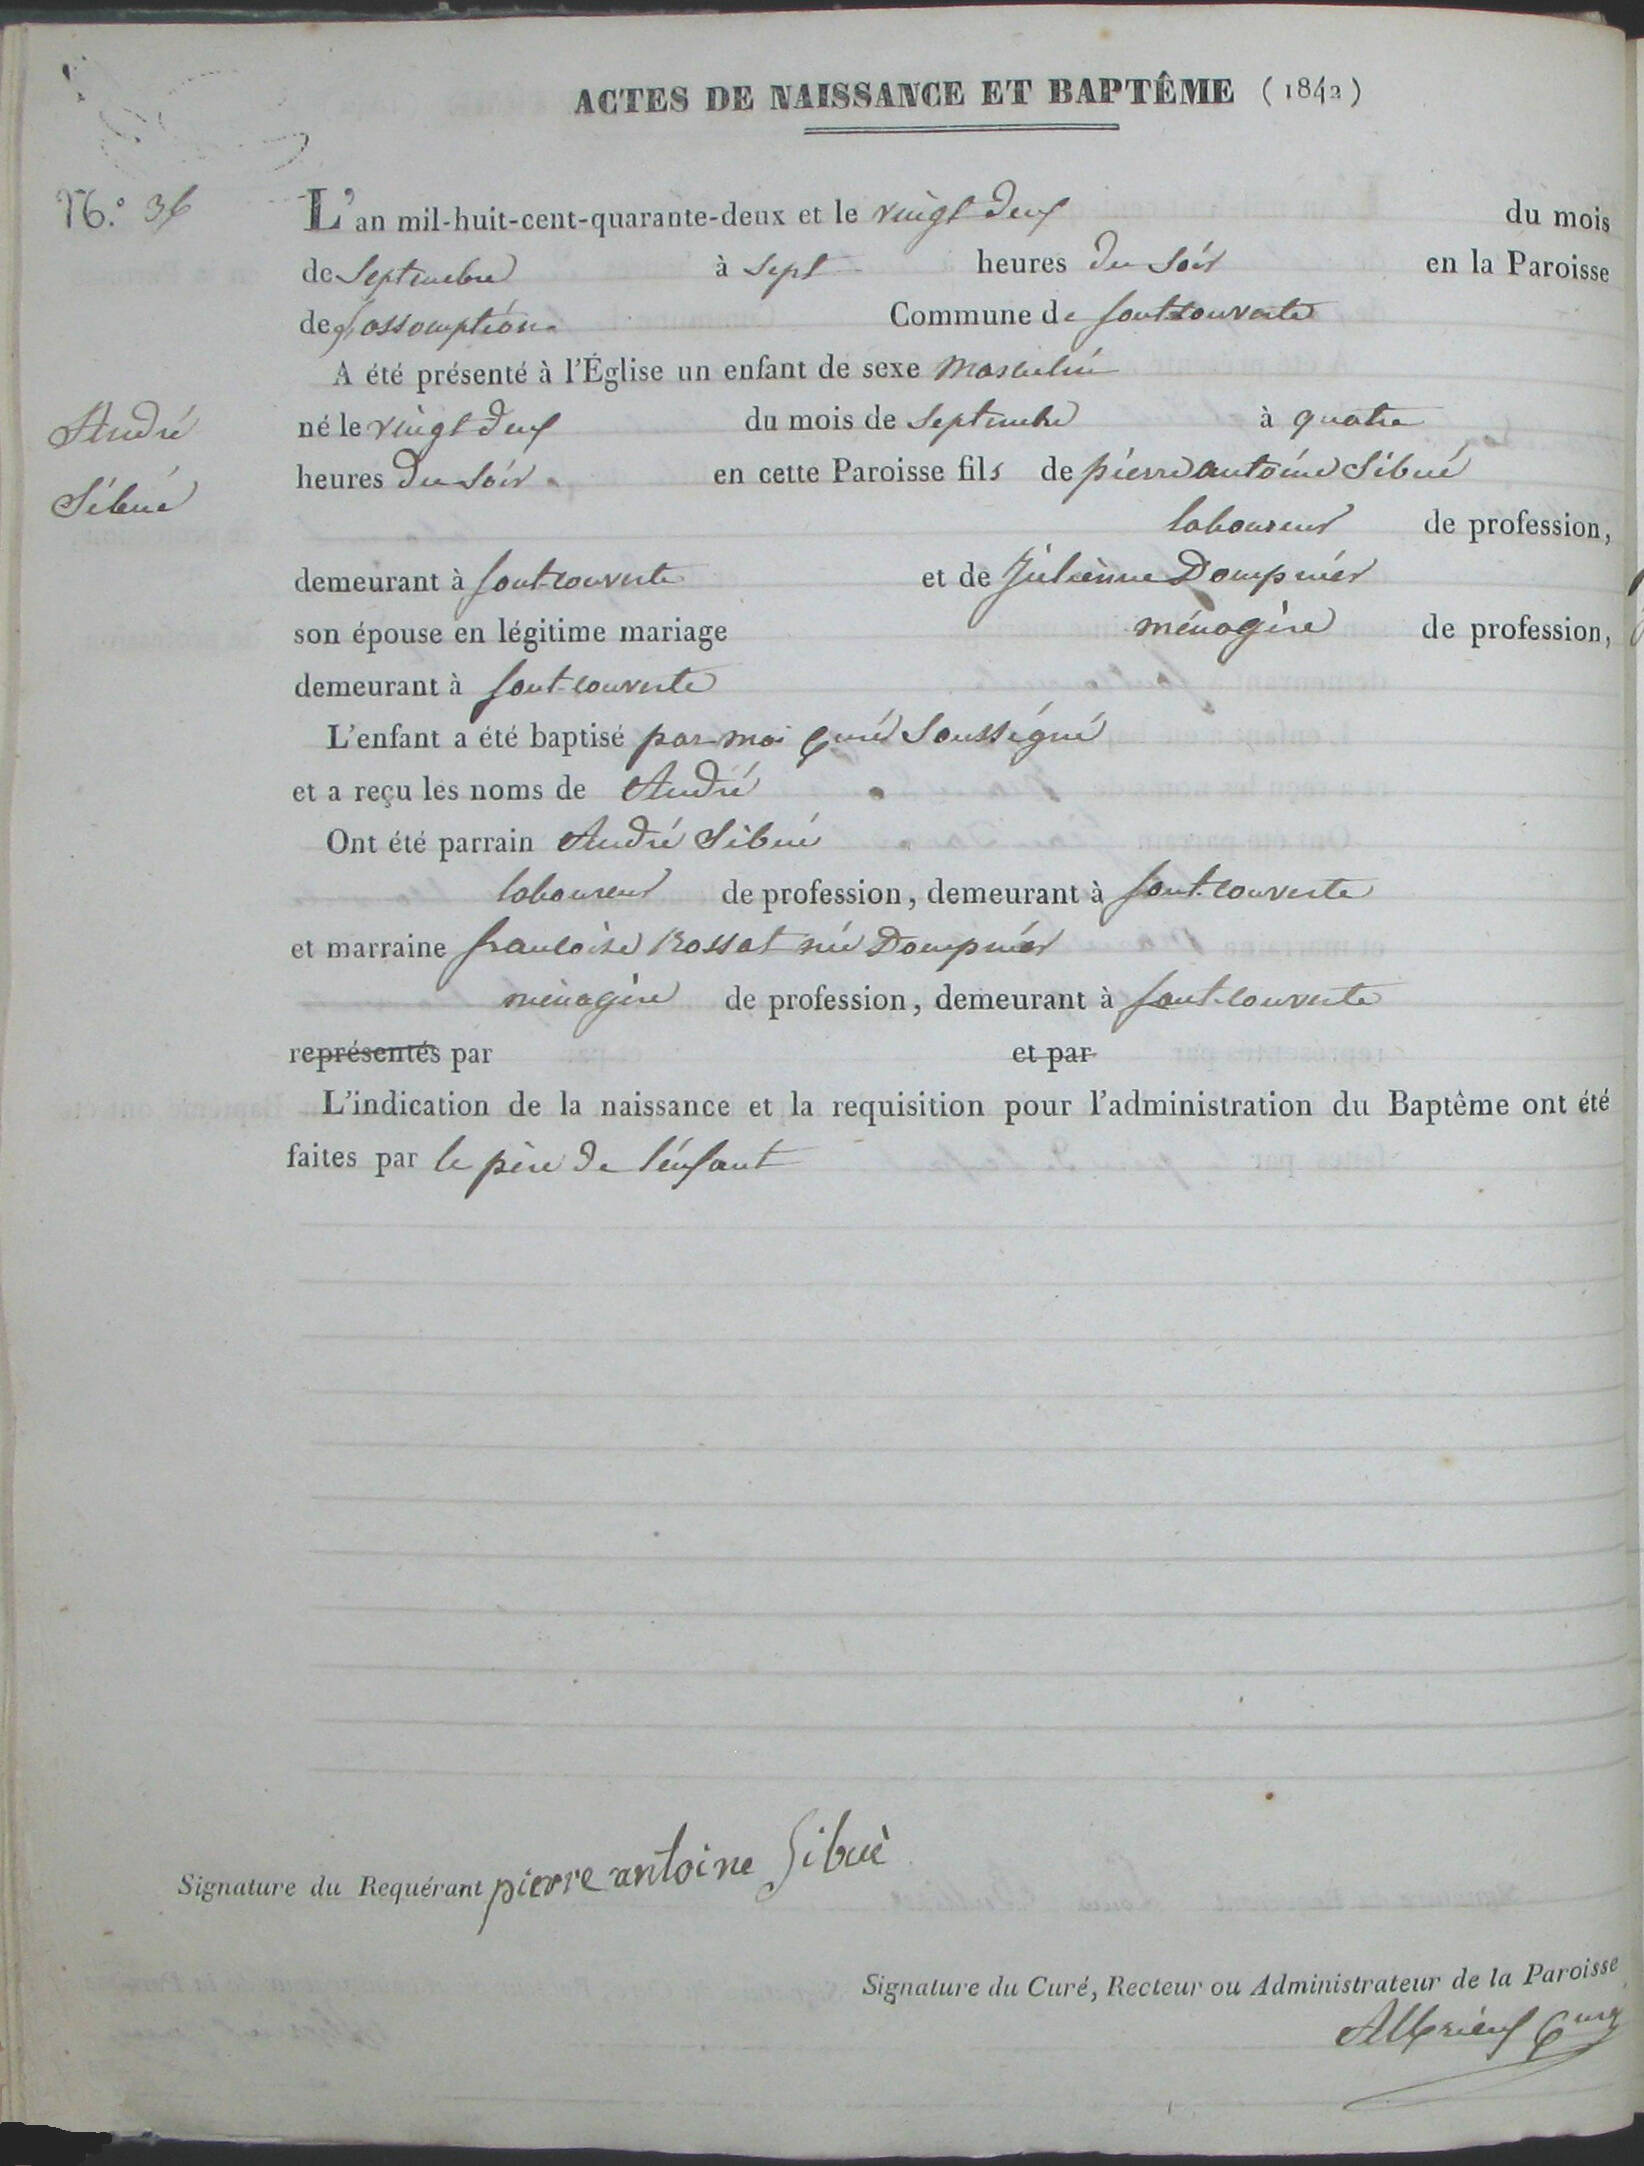 ACTES DE NAISSANCE ET BAPTÊME (1842)
N.º 36
L'an mil-huit-cent-quarante-deux et le vingt deux du mois
de Septembre à Sept heures du Soir en la Paroisse
de l'assomption Commune de fontcouverte
A été présenté à l'Église un enfant de sexe Masculin
André
né le vingt deux du mois de Septembre à quatre
Sibué
heures du Soir en cette Paroisse fils de pierre antoine Sibué
laboureur de profession,
demeurant à font-couverte et de Julienne Dompnier
son épouse en légitime mariage ménagère de profession,
demeurant à font-couverte
L'enfant a été baptisé par moi Curé Soussigné
et a reçu les noms de André
Ont été parrain André Sibué
laboureur de profession, demeurant à font-couverte
et marraine francoise Rossat née Dompnier
ménagère de profession, demeurant à font-couverte
représentés par et par
L'indication de la naissance et la requisition pour l'administration du Baptême ont été
faites par le père de l'enfant
Signature du Requérant pierre antoine Sibuè
Signature du Curé, Recteur ou Administrateur de la Paroisse
Albrieux Curé